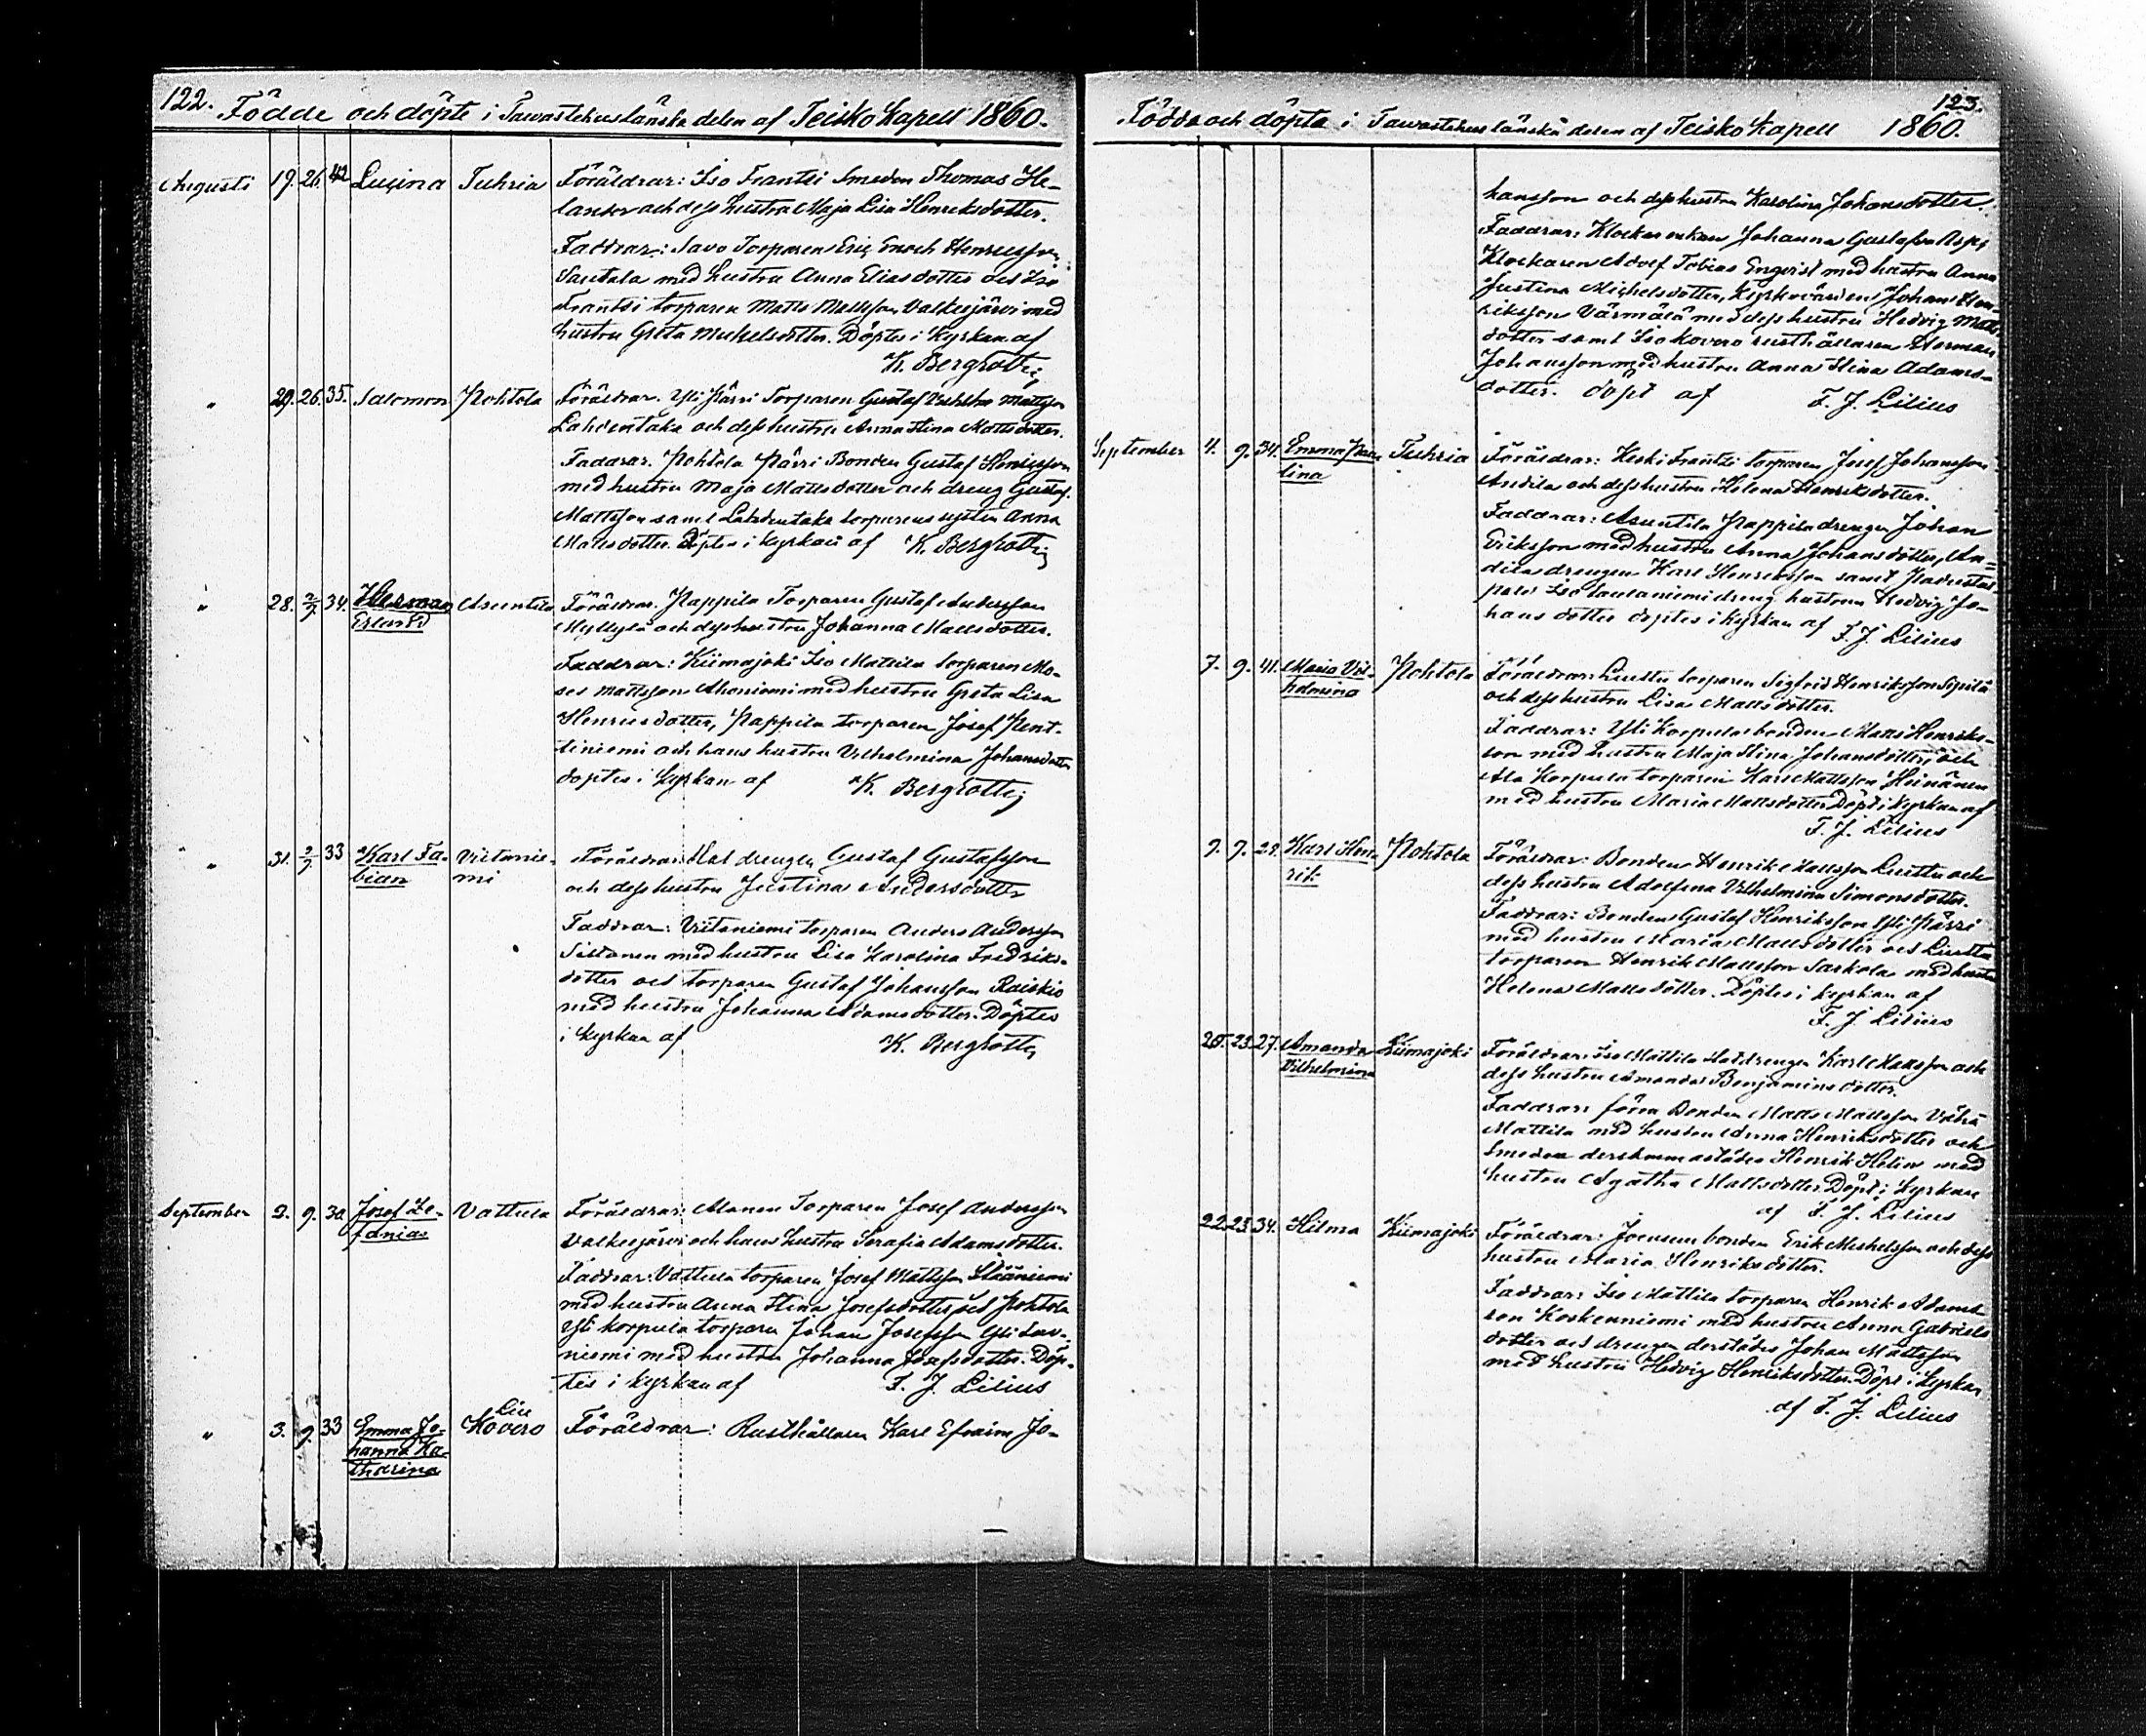 122. Födde och döpte i Tawastehus länska delen af Teisko Kapell 1860.
Augusti 19. 26. 42 Lucina Tuhria Föräldrar: Iso Frantsi Smeden Thomas He-
lander och dess hustru Maja Lisa Henriksdotter.
Faddrar: Savo Torparen Eric Enoch Henricsson
Sautala med hustru Anna Eliasdotter och Iso
Frantsi torparen Matts Mattsson Valkejärvi med
hustru Greta Mickelsdotter. Döptes i Kyrkan af
K. Bergroth
" 20. 26. 35. Salomon Pohtola Föräldrar. Yli Pärri Torparen Gustaf Mattsson
Lahdentaka och dess hustru Anna Stina Mattsdotter.
Faddrar. Pohtola Pärri Bonden Gustaf Henricsson
med hustru Maja Mattsdotter och dreng Gustaf
Mattsson samt Lahdentaka torparens syster Anna
Mattsdotter. Döptes i kyrkan af K. Bergroth
" 28. 2/9. 34. Herman Asuntila Föräldrar. Pappila Torparen Gustaf Andersson
Erland Myllylä och dess hustru Johanna Mattsdotter.
Faddrar: Kiimajoki Iso Mattila torparen Mo-
ses Mattsson Ahoniemi med hustru Greta Lisa
Henricsdotter, Pappila torparen Josef Pent-
tiniemi och hans hustru Vilhelmina Johansdotter
döptes i kyrkan af K. Bergroth
" 31. 2/9. 33 Karl Fa- Viitanie- Föräldrar: drengen Gustaf Gustafsson
bian mi och dess hustru Justina Andersdotter
Faddrar: Viitaniemi torparen Anders Andersson
Siltanen med hustru Lisa Karolina Fredriks-
dotter och torparen Gustaf Johansson Raiskio
med hustru Johanna Adamsdotter. Döptes
i kyrkan af K. Bergroth
September 2. 9. 30 Josef Ze- Vattula Föräldrar: Manen Torparen Josef Andersson
fanias Valkejärvi och hans hustru Serafia Adamsdotter.
Faddrar: Vattula torparen Josef Mattsson
med hustru Anna Stina Josefsdotter och Pohtola
Yli Korpula torparen Johan Josefsson Yli
niemi med hustru Johanna Josefsdotter. Döp-
tes i kyrkan af F. J. Lilius
Lill
" 3. 9. 33 Emma Jo- Kovero Föräldrar: Rusthållaren Karl Efraim Jo-
hanna Ka-
tharina
123.
Födda och döpta i Tawastehus länska delen af Teisko Kapell 1860.
hansson och dess hustru Karolina Johansdotter.
Faddrar: Klockarenkan Johanna Gustafva Asp,
Klockaren Adolf Tobias Enqvist med hustru Anna
Justina Michelsdotter, Kyrkovärden Johan Hen-
riksson Värmälä med dess hustru Hedvig Matts-
dotter samt Iso Kovero rusthållaren Herman
Johansson med hustru Anna Stina Adams-
dotter. döpt af F. J. Lilius
September 4. 9. 34. Emma Pau- Tuhria Föräldrar: Keski Frantsi torparen Josef Johansson
lina Andila och dess hustru Helena Henriksdotter.
Faddrar: Asuntila Pappila drengen Johan
Eriksson med hustru Anna Johansdotter, An-
dila drengen Karl Henriksson samt
Iso Saulaniemi dreng hustrun Hedvig Jo-
hans dotter döptes i kyrkan af F. J. Lilius
7. 9. 41. Maria Vil- Pohtola Föräldrar: Luuttu torparen Sigfrid Henriksson Sipilä
helmina och dess hustru Lisa Mattsdotter.
Faddrar: Yli Korpula bonden Matts Henriks-
son med hustru Maja Stina Johansdotter och
Ala Korpula torparen Karl Mattsson Heinänen
med hustru Maria Mattsdotter. Döpt i kyrkan af
F. J. Lilius
7. 9. 29. Karl Hen- Pohtola Föräldrar: Bonden Henrik Mattsson Luuttu och
rik dess hustru Adolfina Vilhelmina Simonsdotter.
Faddrar: Bonden Gustaf Henriksson Yli Pärri
med hustru Maria Mattsdotter och Luuttu
torparen Henrik Mattsson Saskola med hustru
Helena Mattsdotter. Döptes i kyrkan af
F. J. Lilius
20. 23. 27. Amanda Kiimajoki Föräldrar: Iso Mattila drengen Karl Mattsson och
Vilhelmina dess hustru Amanda Benjaminsdotter.
Faddrar: förra Bonden Matts Mattsson Vähä
Mattila med hustru Anna Henriksdotter och
Smeden dersammastädes Henrik Helin med
hustru Agatha Mattsdotter. Döpt i Kyrkan
af F. J. Lilius
22. 23. 34. Hilma Kiimajoki Föräldrar: Joensuu bonden Erik Michelsson och dess
hustru Maria Henriksdotter.
Faddrar: Iso Mattila torparen Henrik Adams-
son Koskenniemi med hustru Anna Gabriels
dotter och drengen derstädes Johan Mattsson
med hustru Hedvig Henriksdotter. Döpt i kyrkan
af F. J. Lilius